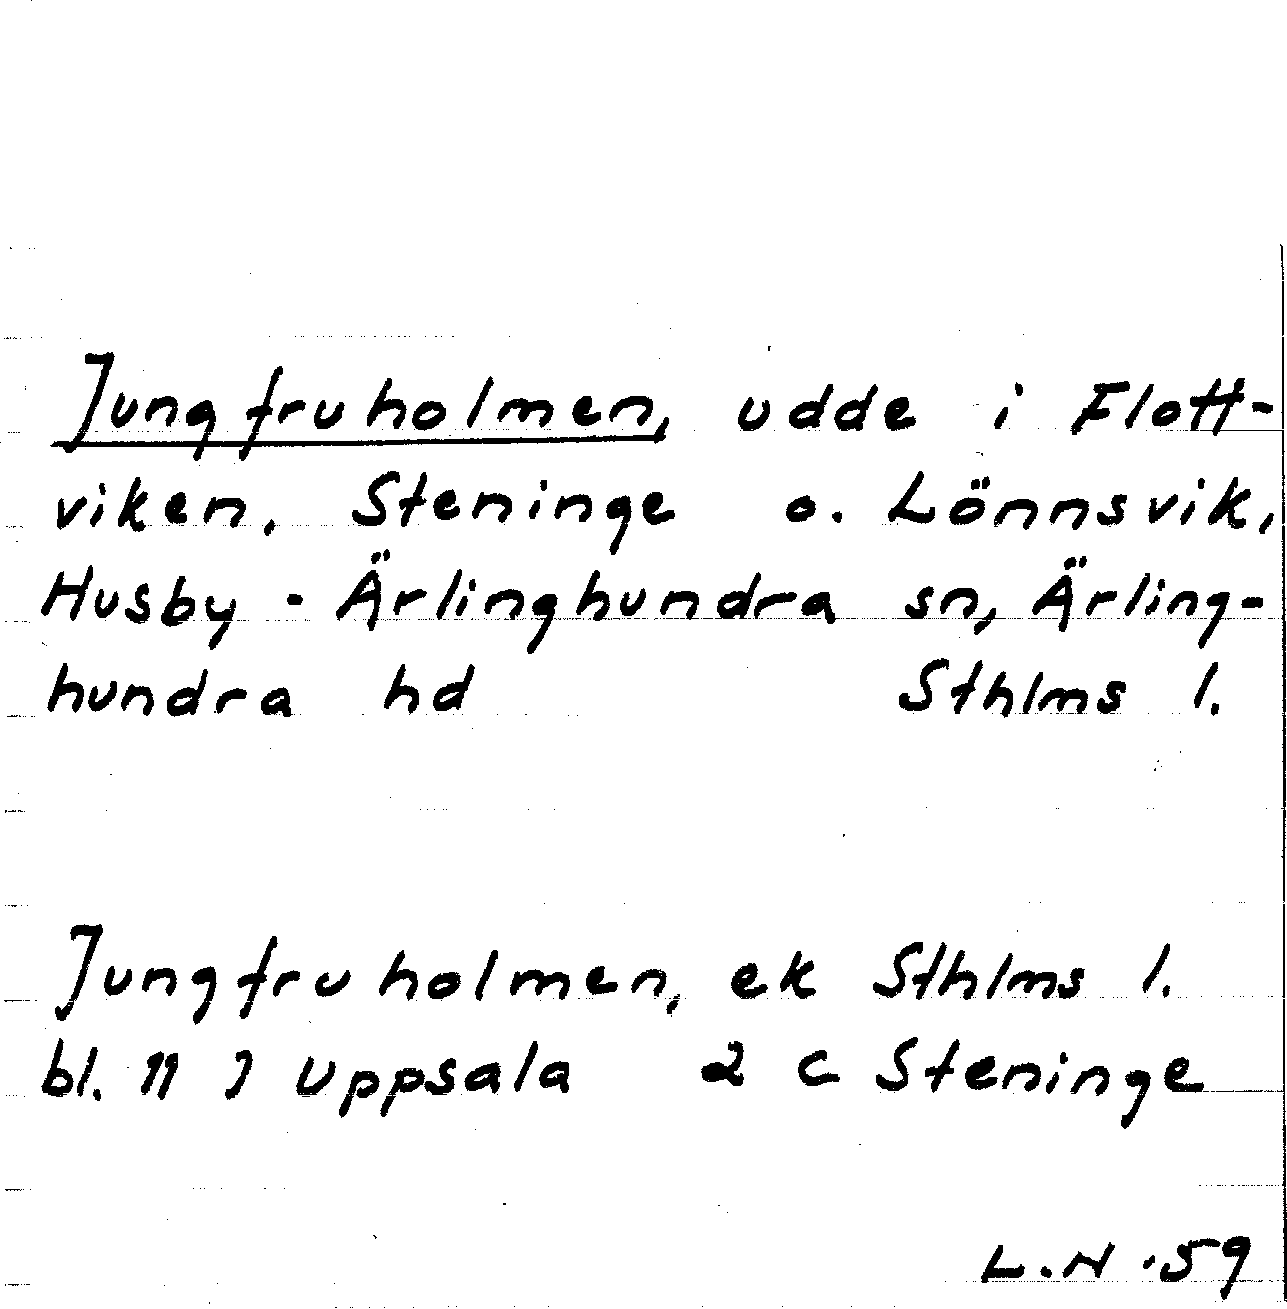 Jungfruholmen, udde i Flott-
viken, Steninge o. Lönnsvik,
Husby - Ärlinghundra sn, Ärling-
hundra hd Sthlms l.
Jungfruholmen, ek Sthlms l.
bl. 11 J Uppsala 2 c Steninge
L.N .59